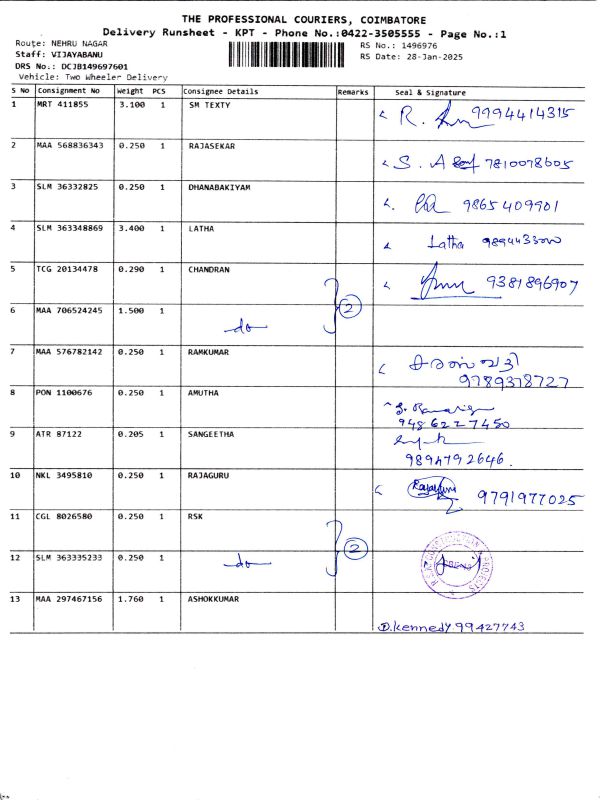 THE PROFESSIONAL COURIERS, COIMBATORE
Delivery Runsheet - KPT - Phone No.:0422-3505555 - Page No.:1
Route: NEHRU NAGAR RS No.: 1496976
Staff: VIJAYABANU RS Date: 28-Jan-2025
DRS No.: DCJB149697601
Vehicle: Two Wheeler Delivery
S No Consignment No Weight PCS Consignee Details Remarks Seal & Signature
1 MRT 411855 3.100 1 SM TEXTY R. 9994414315
2 MAA 568836343 0.250 1 RAJASEKAR S. A 7810078605
3 SLM 36332825 0.250 1 DHANABAKIYAM 9865409901
4 SLM 363348869 3.400 1 LATHA Latha
5 TCG 20134478 0.290 1 CHANDRAN 9381896907
6 MAA 706524245 1.500 1 do 2
7 MAA 576782142 0.250 1 RAMKUMAR சரஸ்வதி
9789378727
8 PON 1100676 0.250 1 AMUTHA
9486227450
9 ATR 87122 0.205 1 SANGEETHA
9894792646.
10 NKL 3495810 0.250 1 RAJAGURU 9791977025
11 CGL 8026580 0.250 1 RSK
12 SLM 363335233 0.250 1 do 2
13 MAA 297467156 1.760 1 ASHOKKUMAR
D.Kennedy 99427743